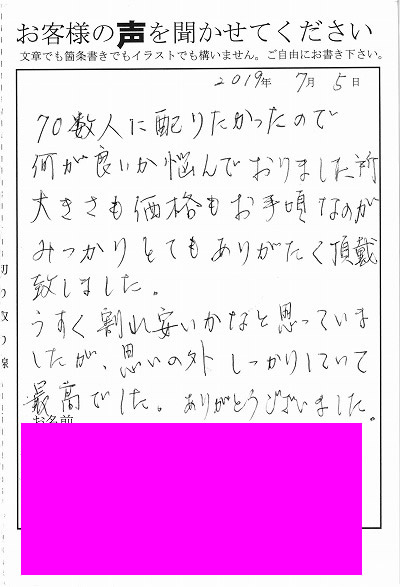 お客様の声を聞かせてください
文章でも箇条書きでもイラストでも構いません。ご自由にお書き下さい。
2019年 7月 5日
70数人に配りたかったので
何が良いか悩んでおりました所
大きさも価格もお手頃なのが
みつかりとてもありがたく頂戴
致しました。
うすく割れ安いかなと思っていま
したが、思いの外しっかりしていて
最高でした。ありがとうございました。
お名前